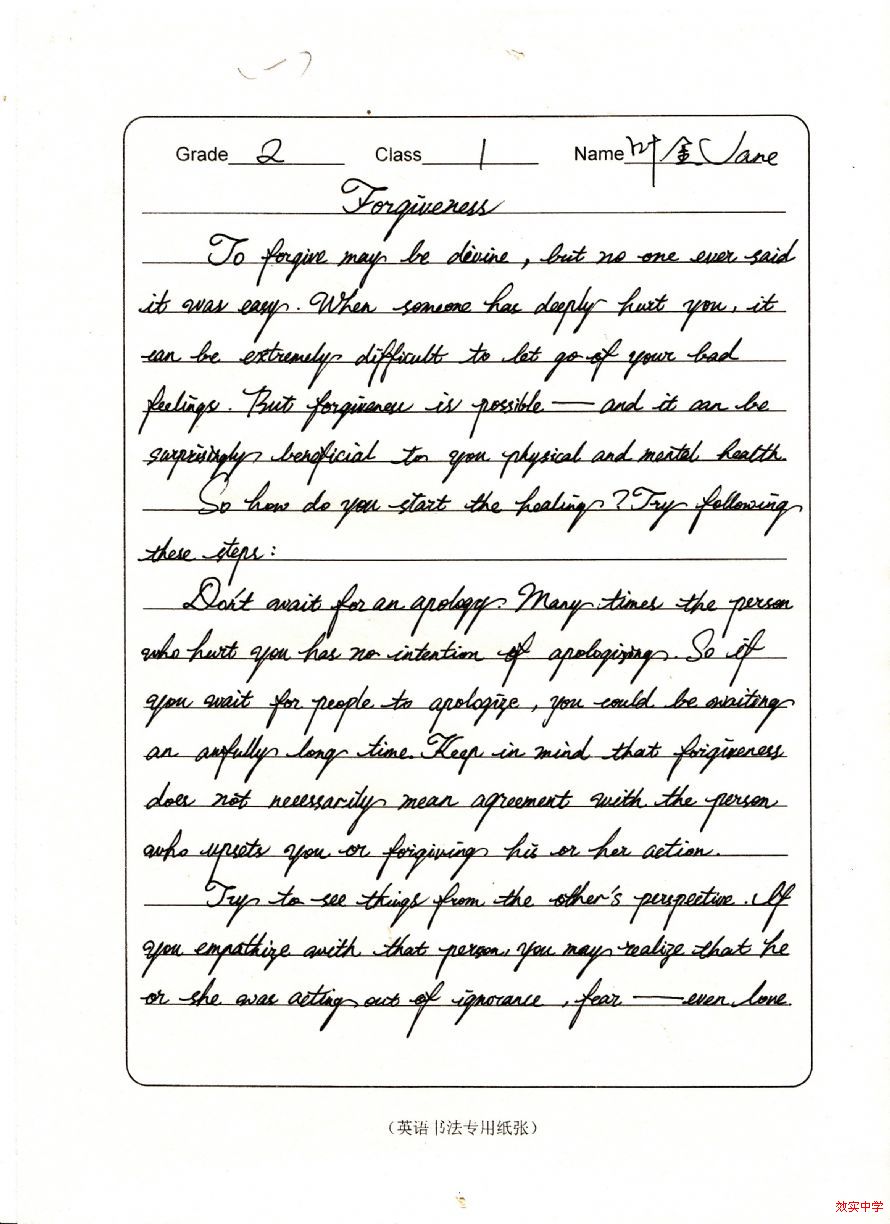 Grade 2 Class 1 Name叶金Jane
Forgiveness
To forgive may be devine, but no one ever said
it was easy. When someone has deeply hurt you, it
can be extremely difficult to let go of your bad
feelings. But forgiveness is possible — and it can be
surprisingly beneficial to you physical and mental health.
So how do you start the healing? Try following
these steps:
Don't wait for an apology. Many times the person
who hurt you has no intention of apologizing. So if
you wait for people to apologize, you could be waiting
an awfully long time. Keep in mind that forgiveness
does not necessarily mean agreement with the person
who upsets you or forgiving his or her action.
Try to see things from the other's perspective. If
you empathize with that person, you may realize that he
or she was acting out of ignorance, fear — even love.
(英语书法专用纸张)
效实中学